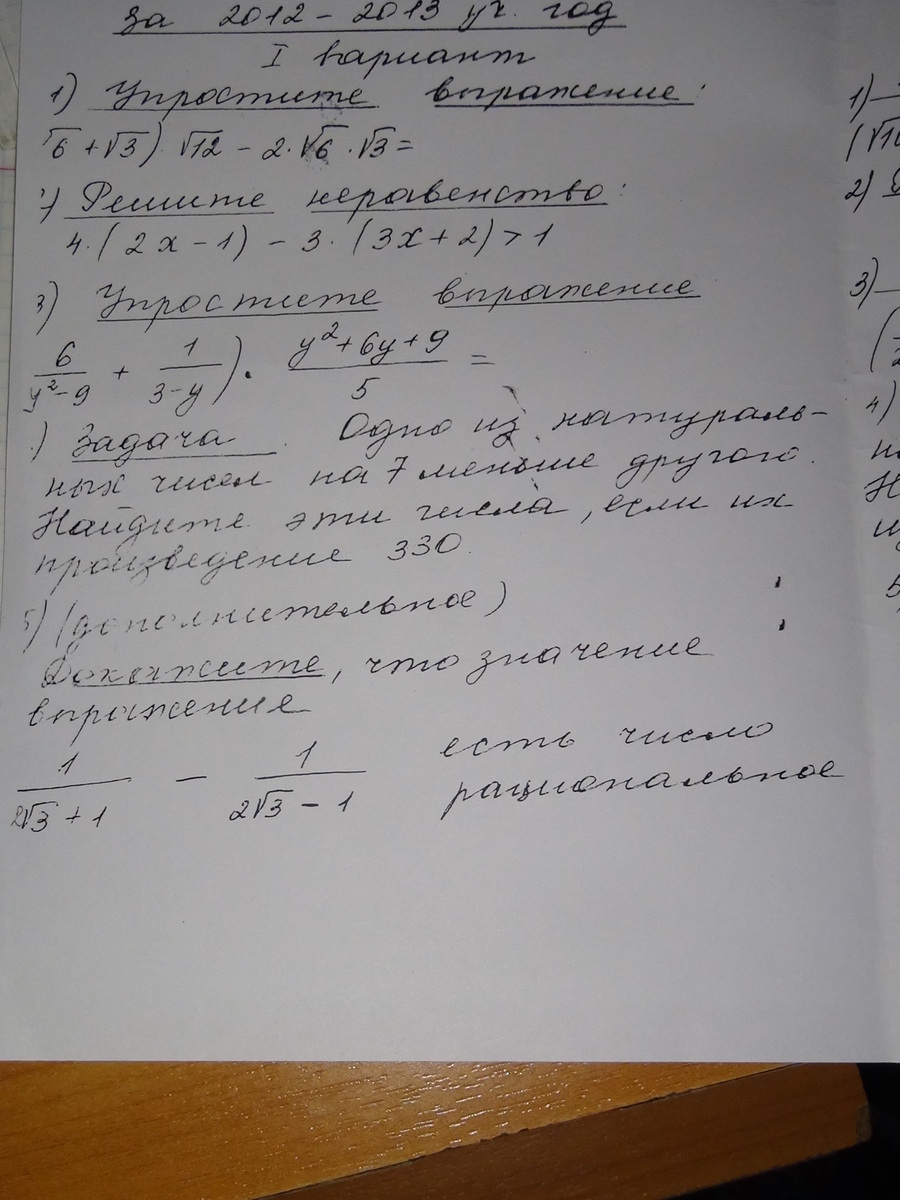 за 2012 - 2013 уч. год
I вариант
1) Упростите выражение:
√6 + √3) · √12 - 2 · √6 · √3 =
2) Решите неравенство:
4 · (2x - 1) - 3 · (3x + 2) > 1
3) Упростите выражение
6/(y²-9) + 1/(3-y)) · (y²+6y+9)/5 =
) Задача. Одно из натураль-
ных чисел на 7 меньше другого.
Найдите эти числа, если их
произведение 330.
5) (дополнительное)
Докажите, что значение
выражения
1/(2√3 + 1) - 1/(2√3 - 1) есть число
рациональное
1)
(√1
2)
3)
4)